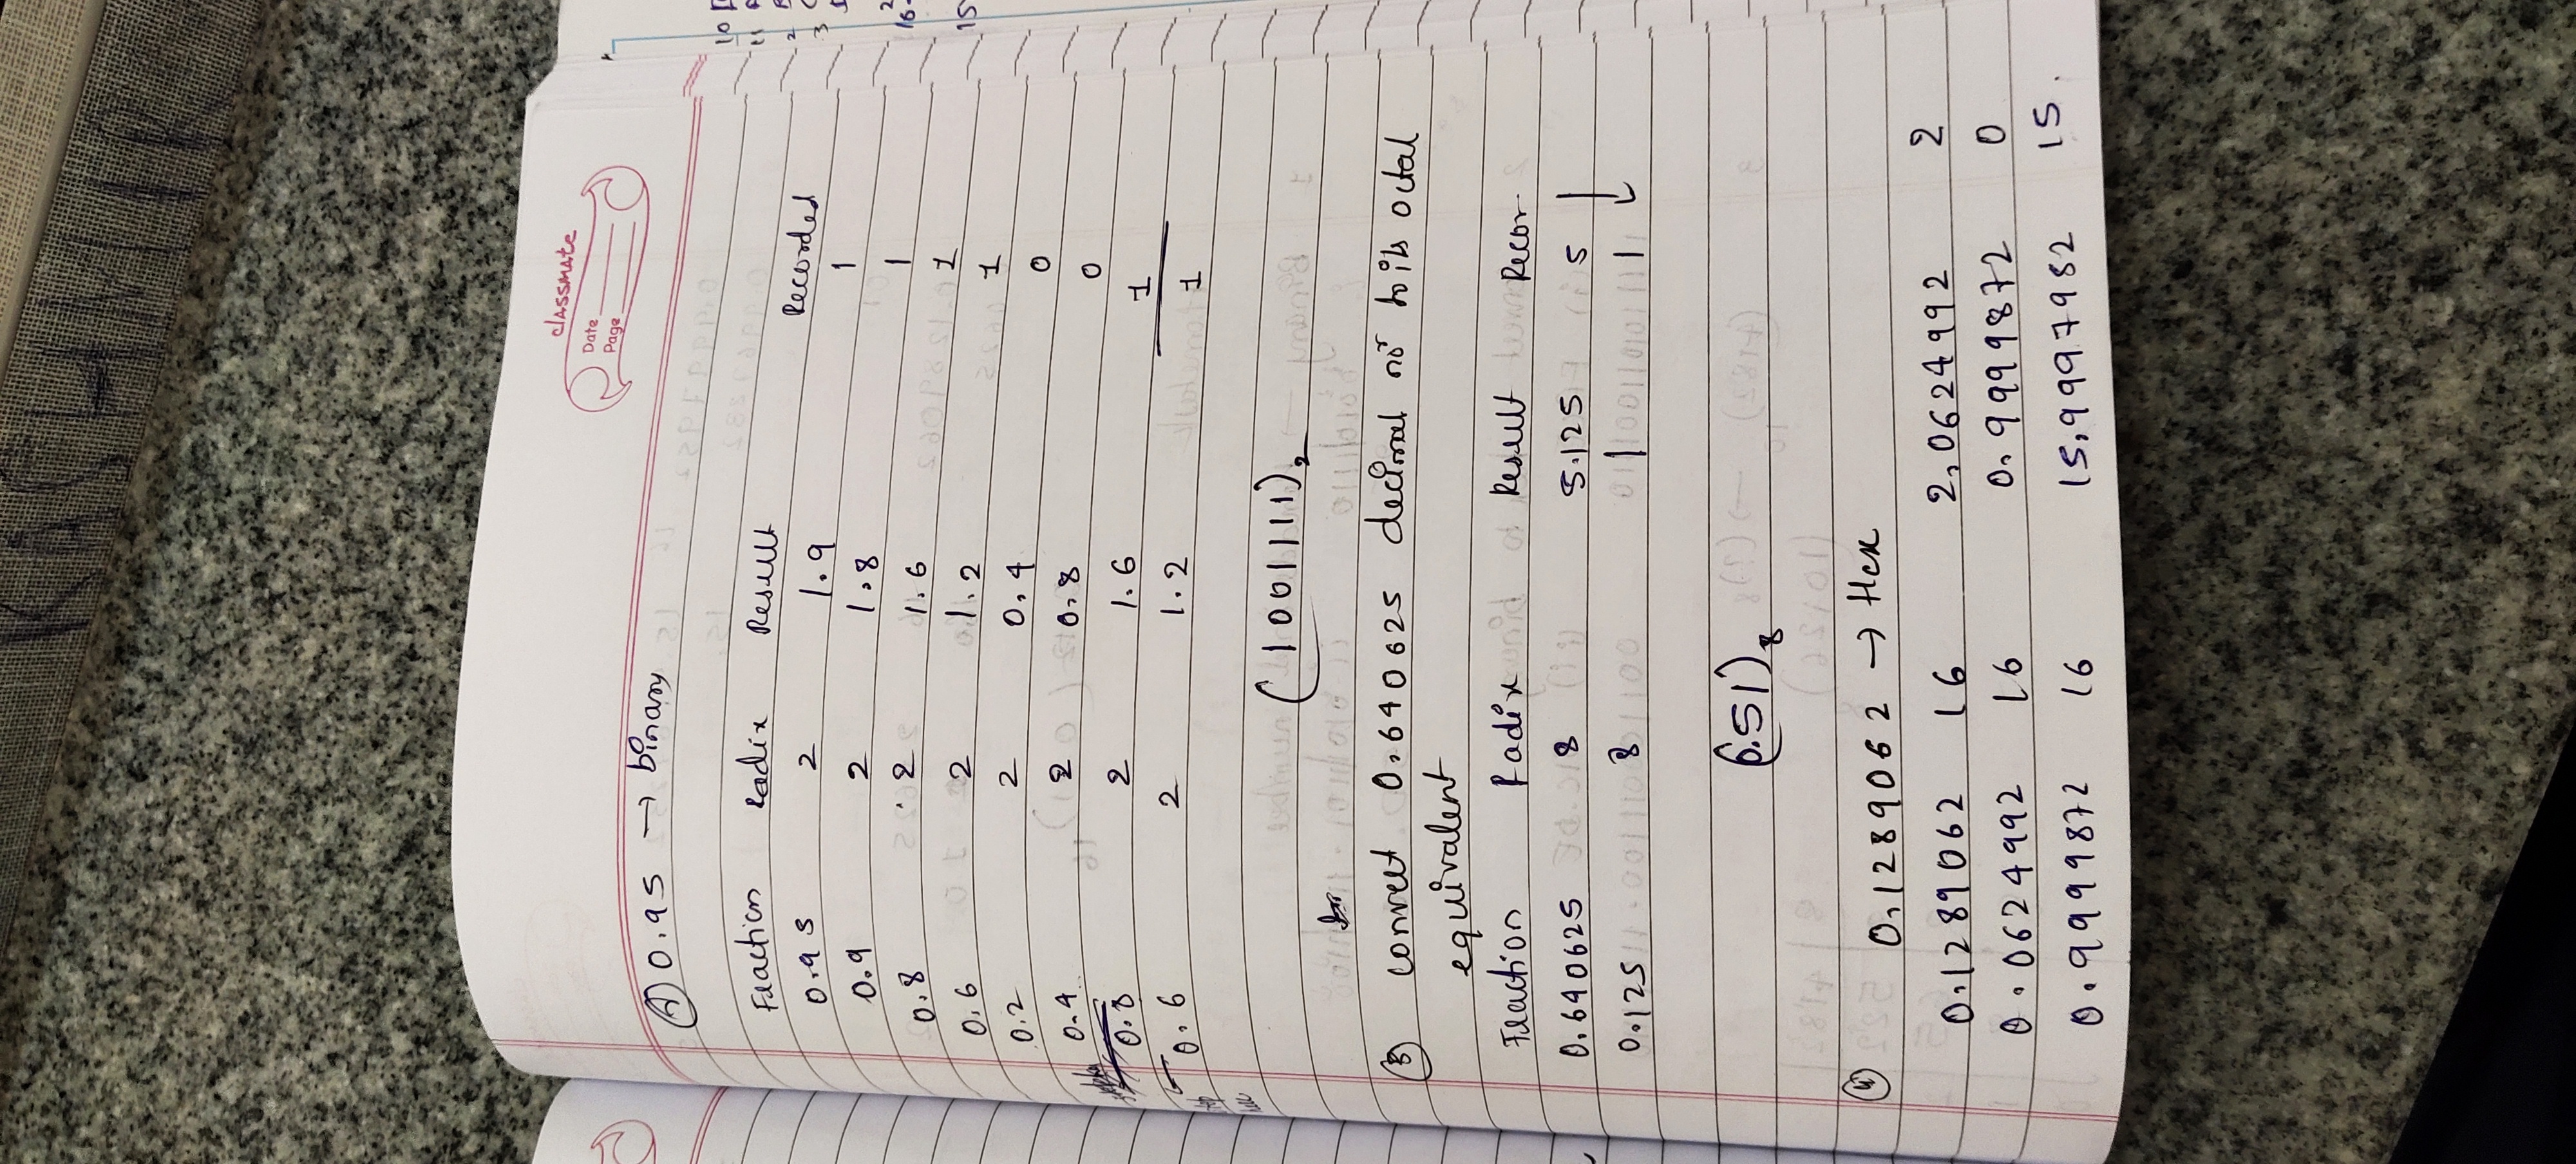 KASHMIR
classmate
Date
Page
A 0.95 → binary
Fraction Radix Result Recorded
0.95 2 1.9 1
0.9 2 1.8 1
0.8 2 1.6 1
0.6 2 1.2 1
0.2 2 0.4 0
0.4 2 0.8 0
0.8 2 1.6 1
0.6 2 1.2 1
(1001111)2
3 convert 0.640625 decimal no to its octal
equivalent
Fraction Radix Result Recor
0.640625 8 5.125 5
0.125 8 1 1
(0.51)8
4 0.1289062 → Hex
0.1289062 16 2.0624992 2
0.0624992 16 0.9999872 0
0.9999872 16 15.9997952 15.